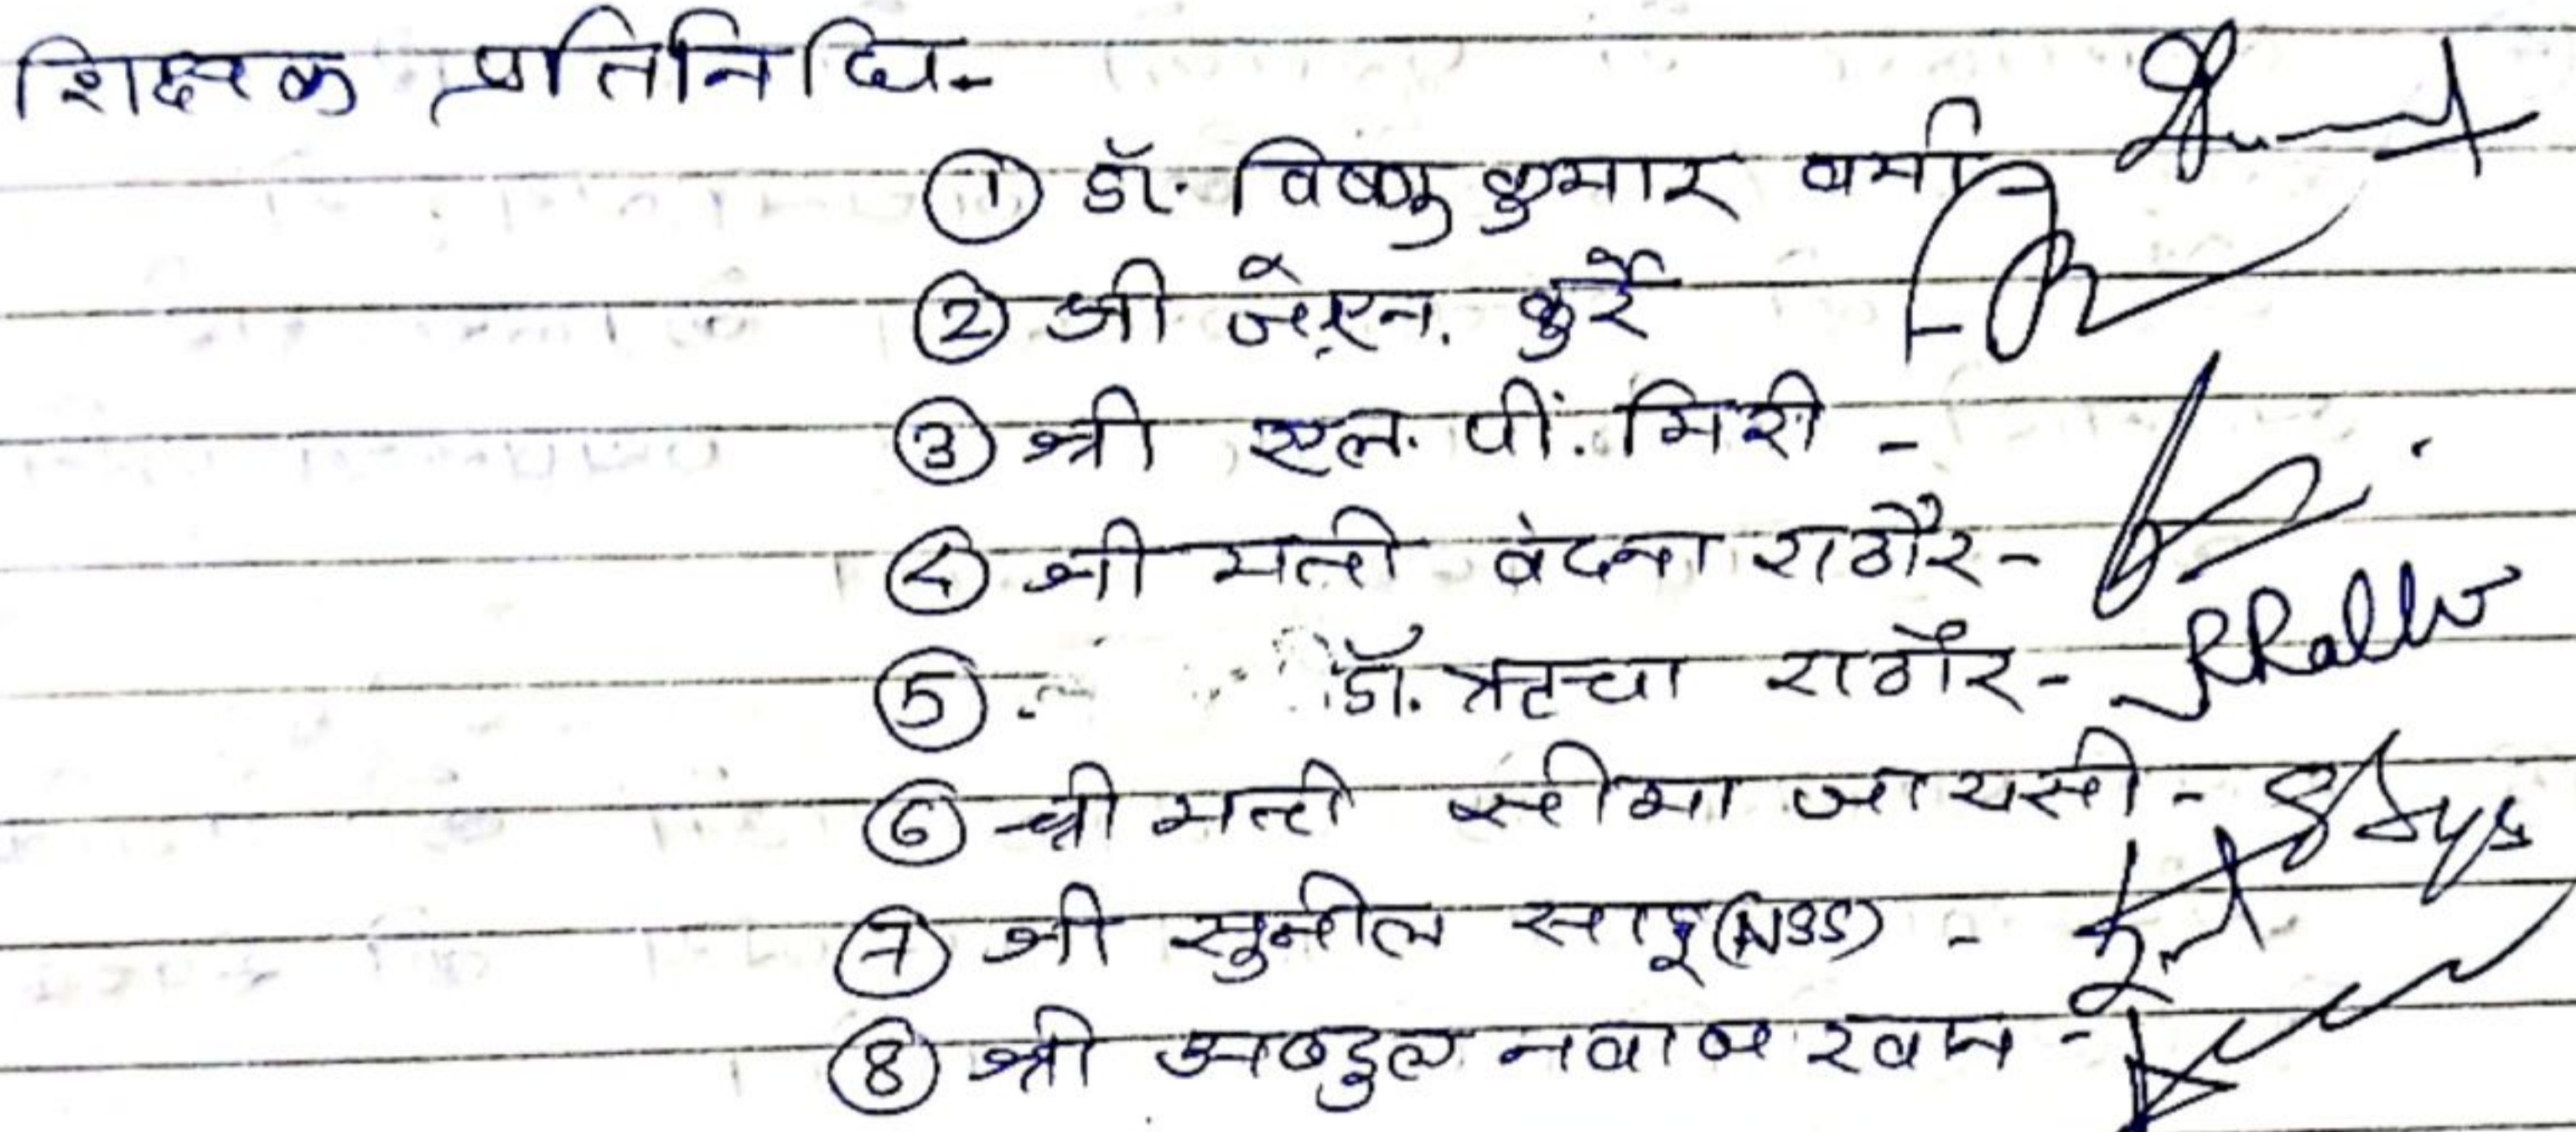 शिक्षक प्रतिनिधि-
① डॉ. विष्णु कुमार वर्मा
② श्री जे.एन. कुर्रे
③ श्री एल. पी. मिरी -
④ श्री मती वंदना राठौर-
⑤ डॉ. ऋचा राठौर-
⑥ श्री मती सीमा जायसी -
⑦ श्री सुनील साहू (NSS) -
⑧ श्री अब्दुल नवाब खान -